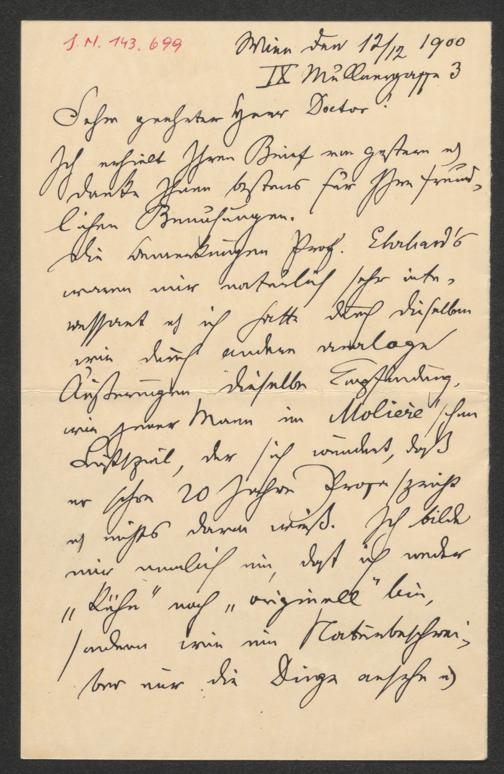 I. N. 143.699
Wien den 12/12 1900
IX Müllnergasse 3
Sehr geehrter Herr Doctor!
Ich erhielt Ihren Brief von gestern u
danke Ihnen bestens für Ihre freund-
lichen Bemühungen.
Die Bemerkungen Prof. Ehrhard's
waren mir natürlich sehr inte-
ressant u ich hatte durch dieselben
wie durch andere analoge
Äußerungen dieselbe Empfindung,
wie jener Mann im Moliere'schen
Lustspiel, der sich wundert, daß
er schon 20 Jahre Prosa spricht
u nichts davon weiß. Ich bilde
mir nemlich ein, daß ich weder
„kühn" noch „originell" bin,
sondern wie ein Naturbeschrei-
ber nur die Dinge ansehe u